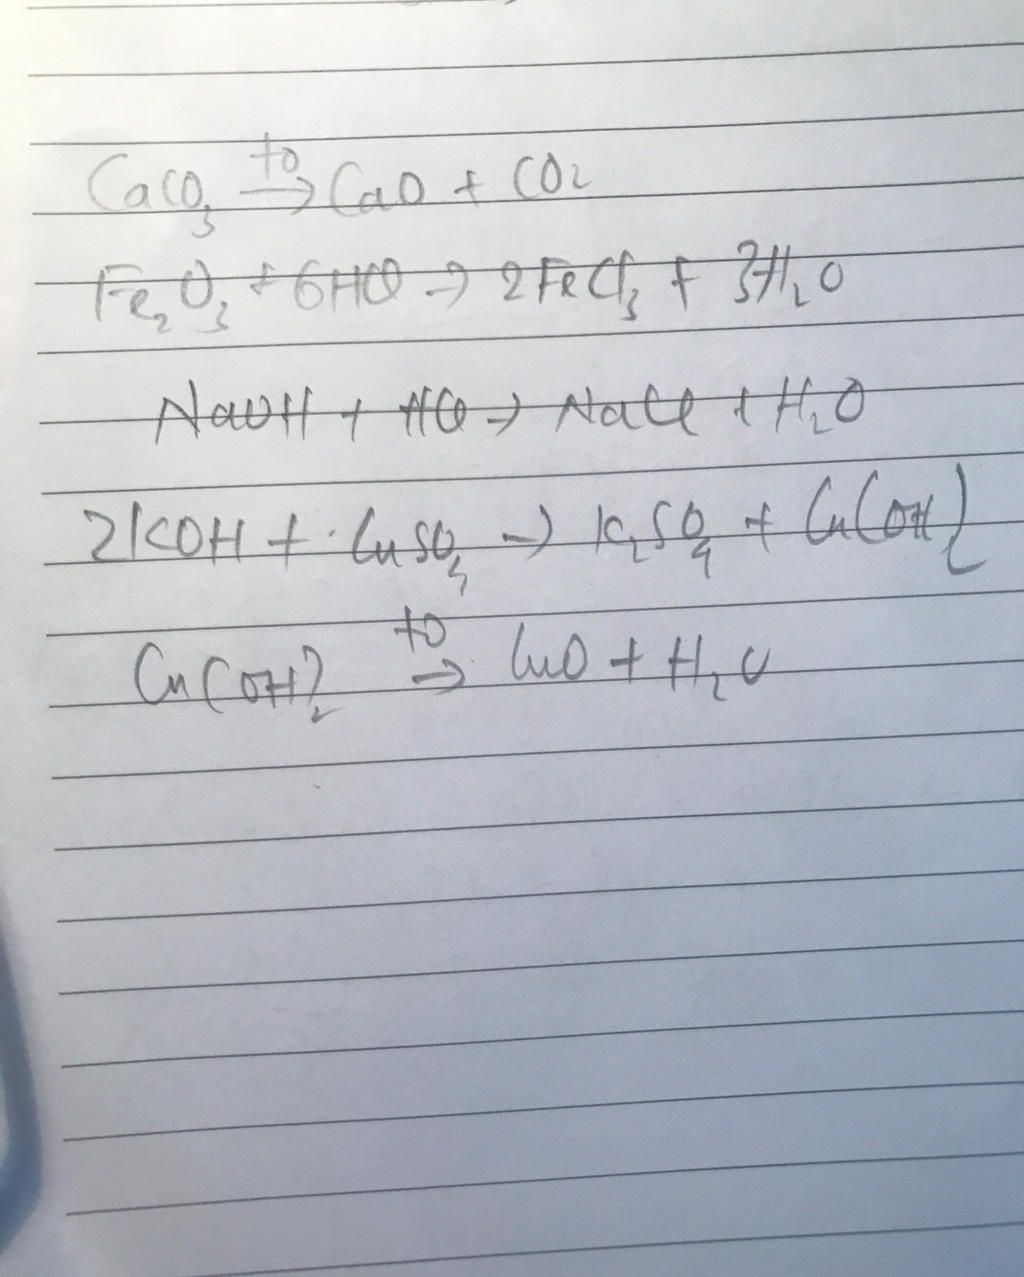 CaCO₃ →(to) CaO + CO₂
Fe₂O₃ + 6HCl → 2FeCl₃ + 3H₂O
NaOH + HCl → NaCl + H₂O
2KOH + CuSO₄ → K₂SO₄ + Cu(OH)₂
Cu(OH)₂ →(to) CuO + H₂O